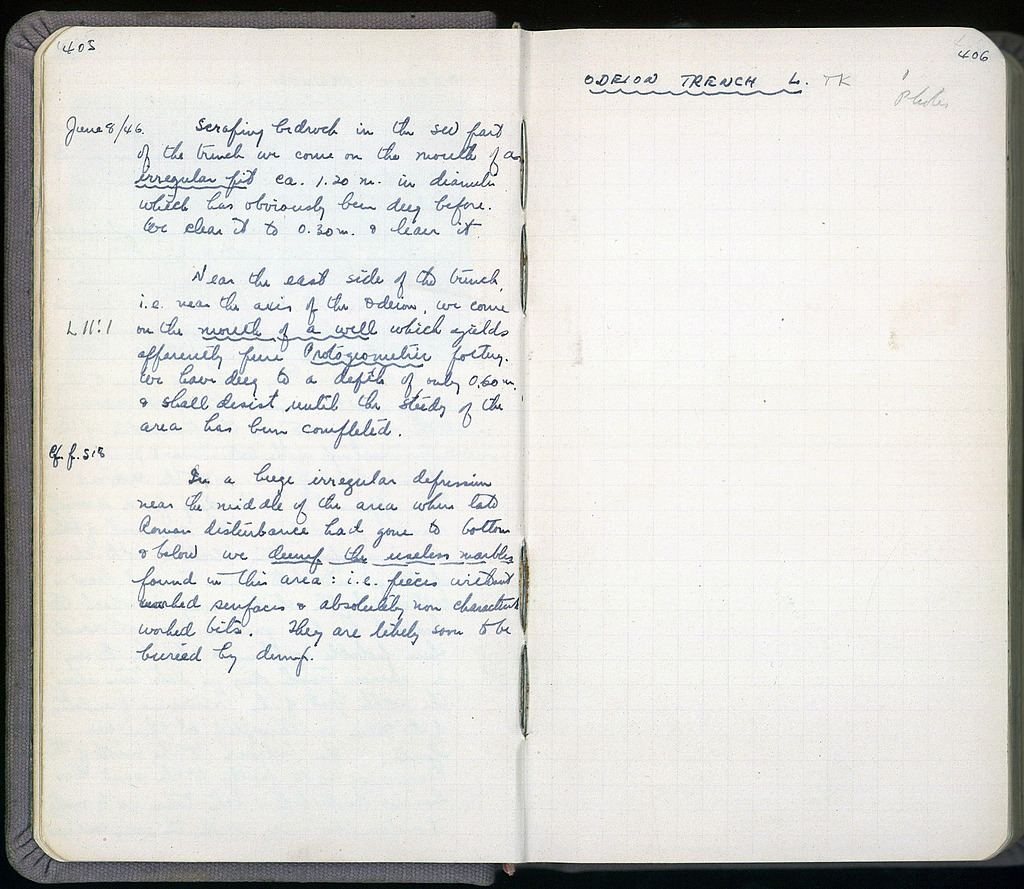 405
June 8/46. Scraping bedrock in the SW part
of the trench we come on the mouth of an
irregular pit ca. 1.20 m. in diameter
which has obviously been dug before.
We clear it to 0.30 m. & leave it.
Near the east side of the trench,
i.e. near the axis of the Odeion, we come
L 11:1 on the mouth of a well which yields
apparently pure Protogeometric pottery.
We have deeg to a depth of only 0.60 m.
& shall desist until the study of the
area has been completed.
Cf. p. 518
In a huge irregular depression
near the middle of the area where late
Roman disturbance had gone to bottom
& below we dump the useless marbles
found in this area: i.e. pieces without
worked surfaces & absolutely non characteristic
worked bits. They are likely soon to be
buried by dump.
406
ODEION TRENCH L. TK
Photos